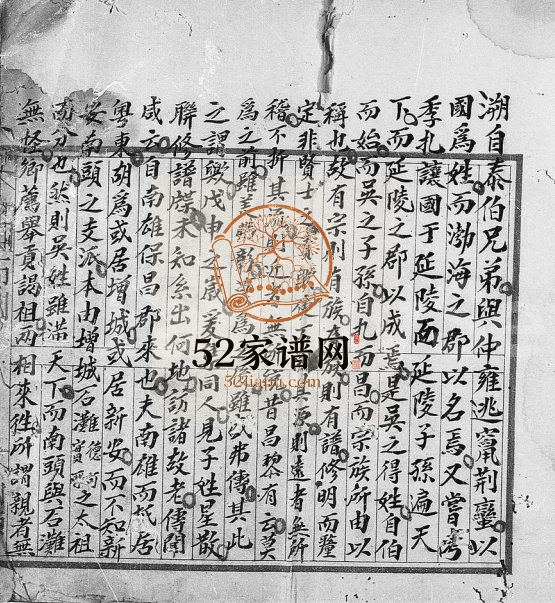 溯自泰伯兄弟與仲雍逃竄荆蠻以
國為姓而渤海之郡以名焉又嘗考
季札讓國于延陵而延陵子孫遍天
下而延陵之郡以成焉是吳之得姓自伯
而始而吳之子孫自札而昌而宗族所由以
稱也故有宗則有族有族則有譜修明而釐
定非賢士
稽不折其 則近 無 昔昌黎有云莫
為之前雖美 為 雖盛弗傳其此
之謂歟戊申之歲爰 同人見子姓星散
聯修譜牒未知系出何地訪諸故老傳聞
咸云自南雄保昌郡來也夫南雄而抵居
粵東胡為或居增城或居新安而不知新
安南頭之支派本由增城石灘 之太祖
而分也然則吳姓雖滿天下而南頭與石灘
無怪鄉薦舉貢謁祖兩相來往所謂親者無
52家谱网
52jiapu.com